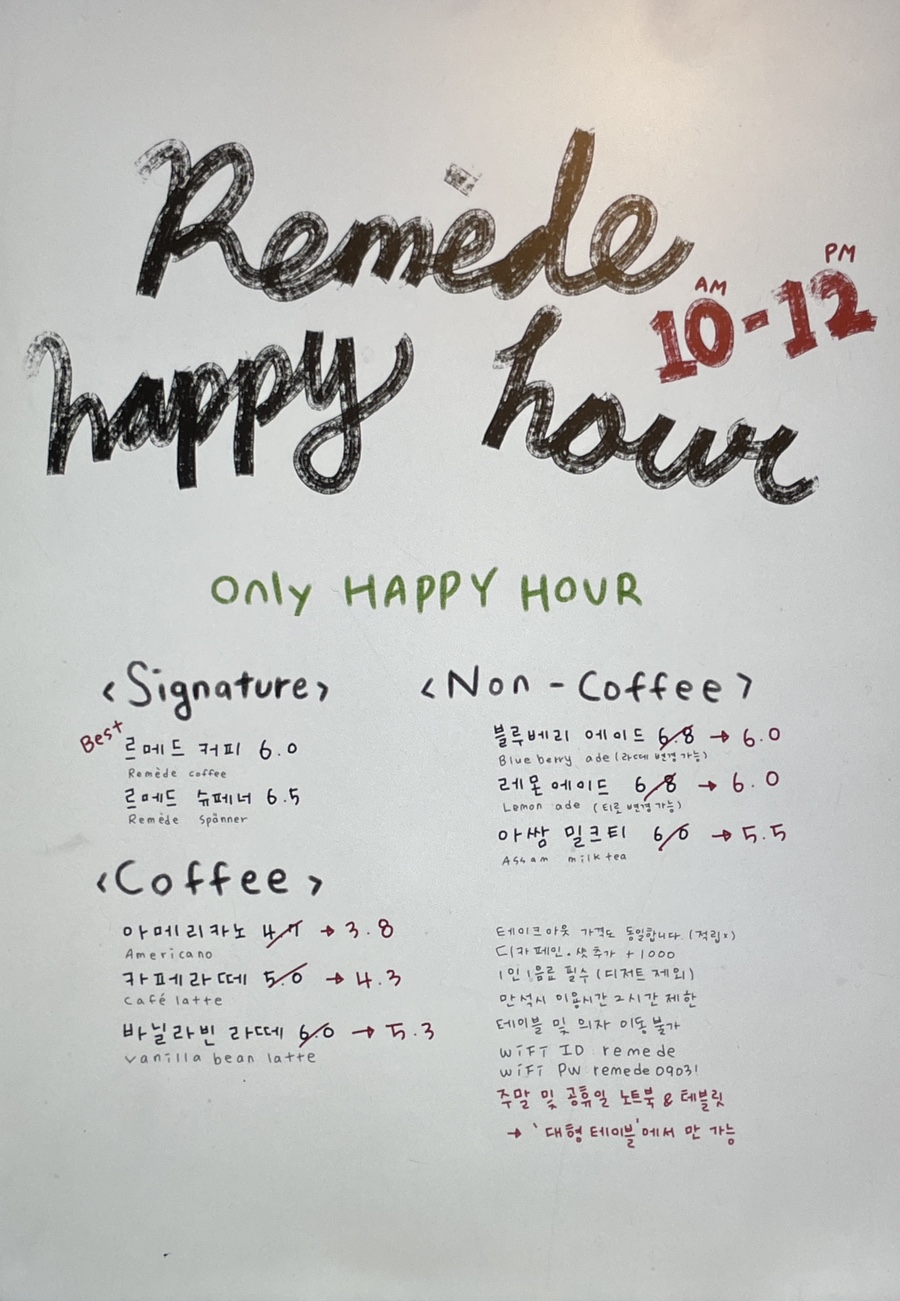 Remède
AM PM
10-12
happy hour
only HAPPY HOUR
<Signature>
Best
르메드 커피 6.0
Remède coffee
르메드 슈페너 6.5
Remède Spänner
<Coffee>
아메리카노 4.7 → 3.8
Americano
카페라떼 5.0 → 4.3
café latte
바닐라빈 라떼 6.0 → 5.3
vanilla bean latte
<Non-Coffee>
블루베리 에이드 6.8 → 6.0
Blueberry ade (라떼 변경 가능)
레몬에이드 6.8 → 6.0
Lemon ade (티로 변경 가능)
아쌈 밀크티 6.0 → 5.5
Assam milk tea
테이크아웃 가격도 동일합니다. (적립x)
디카페인. 샷추가 +1000
1인 1음료 필수 (디저트 제외)
만석시 이용시간 2시간 제한
테이블 및 의자 이동 불가
WiFi ID remede
WiFi PW remede0903!
주말 및 공휴일 노트북 & 테블릿
→ '대형 테이블'에서 만 가능